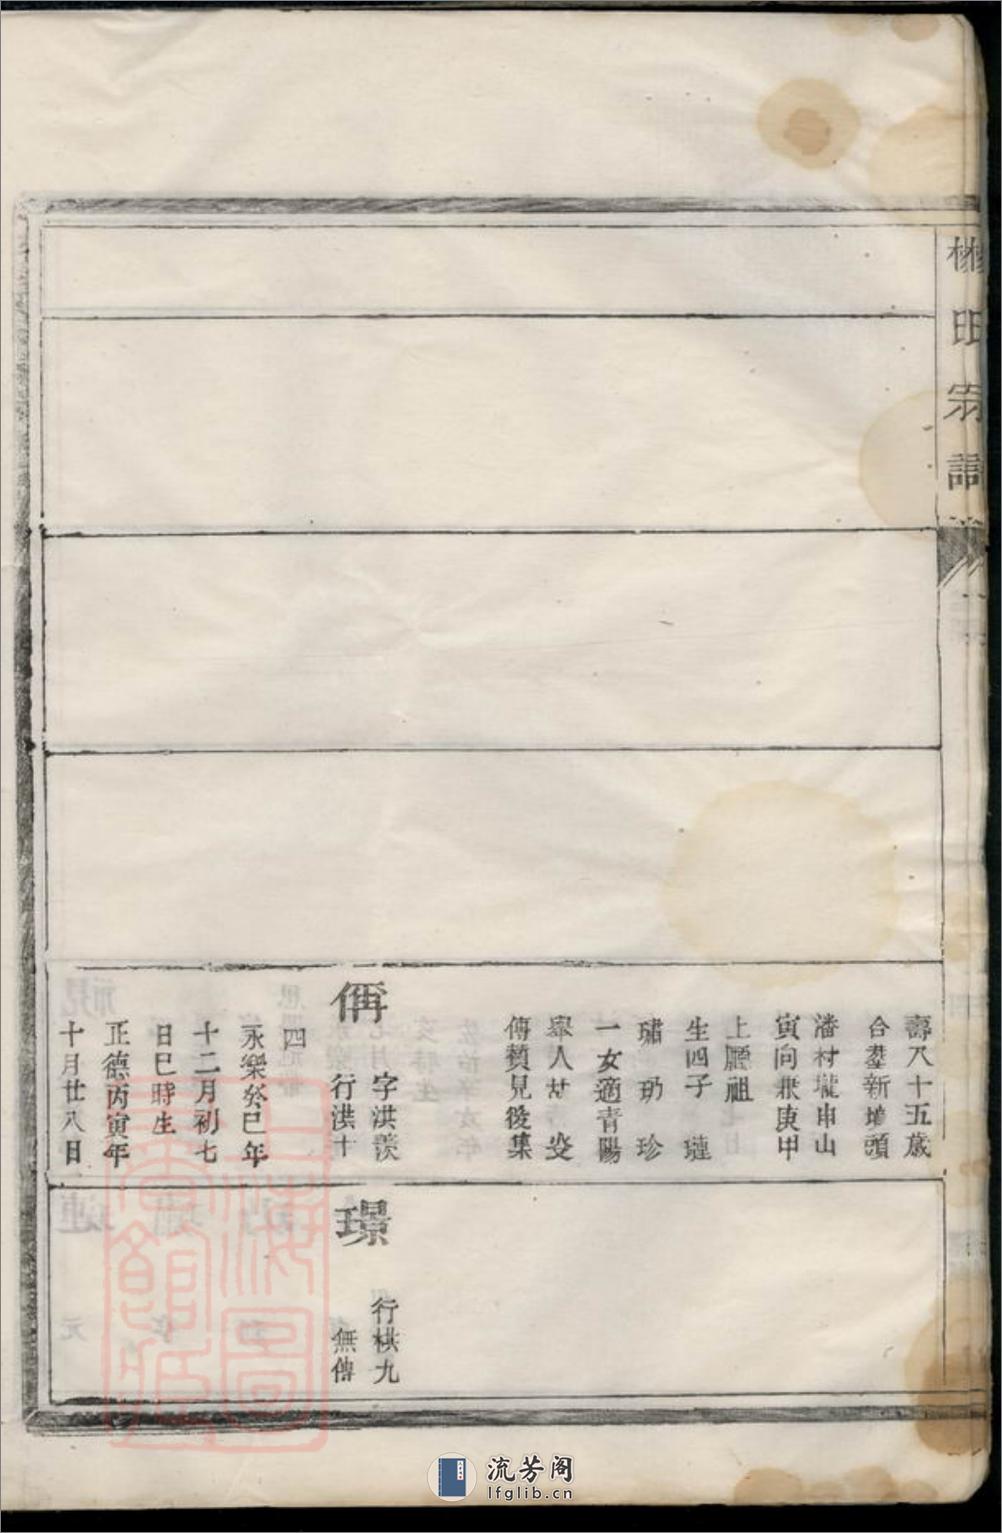 壽八十五歲
合塟新墳頭
潘村壠申山
寅向兼庚甲
上廳祖
生四子 璉
璛 玬 珍
一女適青陽
舉人 妟
傳贊見後集
偁
字洪羨
行洪十
四
永樂癸巳年
十二月初七
日巳時生
正德丙寅年
十月廿八日
璟
行栱九
無傳
上海圖書館藏
流芳阁
lfglib.cn